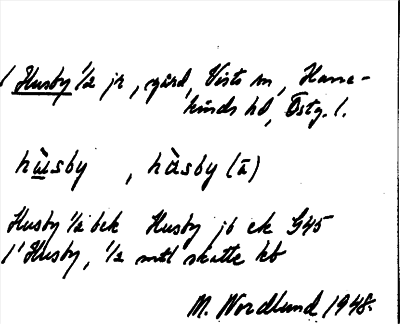 1 Husby ½ jr, gård, Vists sn, Hane-
kinds hd, Östg. l.
hùsby, hùsby (ā)
Husby ½ bek Husby jb ek G45
1' Husby, ½ mtl skatte kb
M. Nordlund 1948.